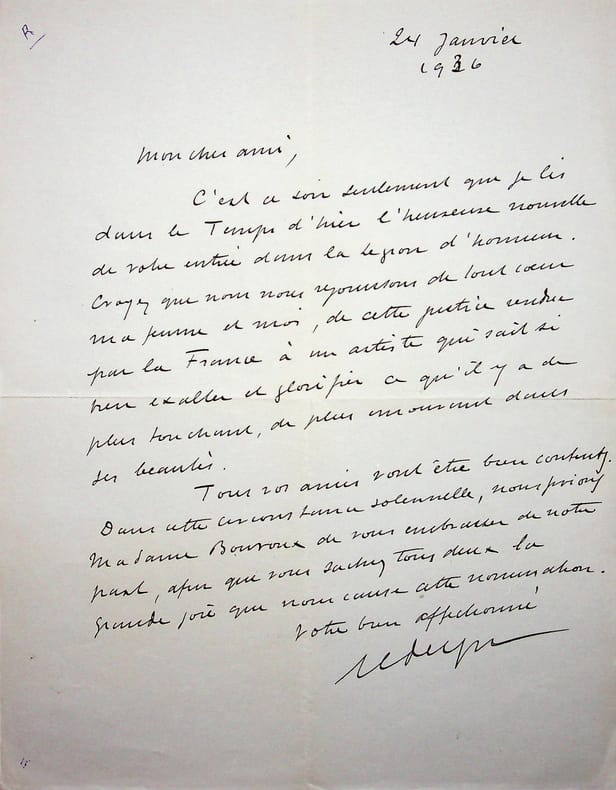 R
24 Janvier
1936
Mon cher ami,
C'est ce soir seulement que je lis
dans le Temps d'hier l'heureuse nouvelle
de votre entrée dans la Légion d'honneur.
Croyez que nous nous réjouissons de tout coeur
ma femme et moi, de cette justice rendue
par la France à un artiste qui sait si
bien exalter et glorifier ce qu'il y a de
plus touchant, de plus émouvant dans
ses beautés.
Tous vos amis vont être bien contents.
Dans cette circonstance solennelle, nous prions
Madame Bouroux de vous embrasser de notre
part, afin que vous sachiez tous deux la
grande joie que nous cause cette nomination.
Votre bien affectionné